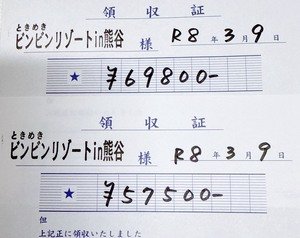 領収証
ときめき
ビンビンリゾートin熊谷 様 R8年3月9日
★ ¥69800-
領収証
ときめき
ビンビンリゾートin熊谷 様 R8年3月9日
★ ¥57500-
但
上記正に領収いたしました